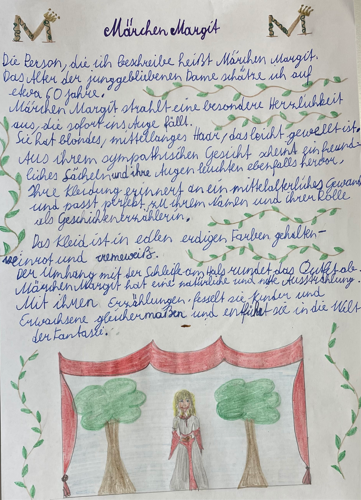 M Märchen Margit M
Die Person, die ich beschreibe heißt Märchen Margit.
Das Alter der junggebliebenen Dame schätze ich auf
etwa 60 Jahre.
Märchen Margit strahlt eine besondere Herzlichkeit
aus, die sofort ins Auge fällt.
Sie hat blondes, mittellanges Haar, das leicht gewellt ist.
Aus ihrem sympathischen Gesicht scheint ein freund-
liches Lächeln und ihre Augen leuchten ebenfalls hervor.
Ihre Kleidung erinnert an ein mittelalterliches Gewand
und passt perfekt zu ihrem Namen und ihrer Rolle
als Geschichtenerzählerin.
Das Kleid ist in edlen erdigen Farben gehalten-
weinrot und
Der Umhang mit der Schleife am Hals rundet das Outfit ab.
Märchen Margit hat eine natürliche und nette Ausstrahlung.
Mit ihren Erzählungen fesselt sie Kinder und
Erwachsene gleichermaßen und entführt sie in die Welt
der Fantasie.